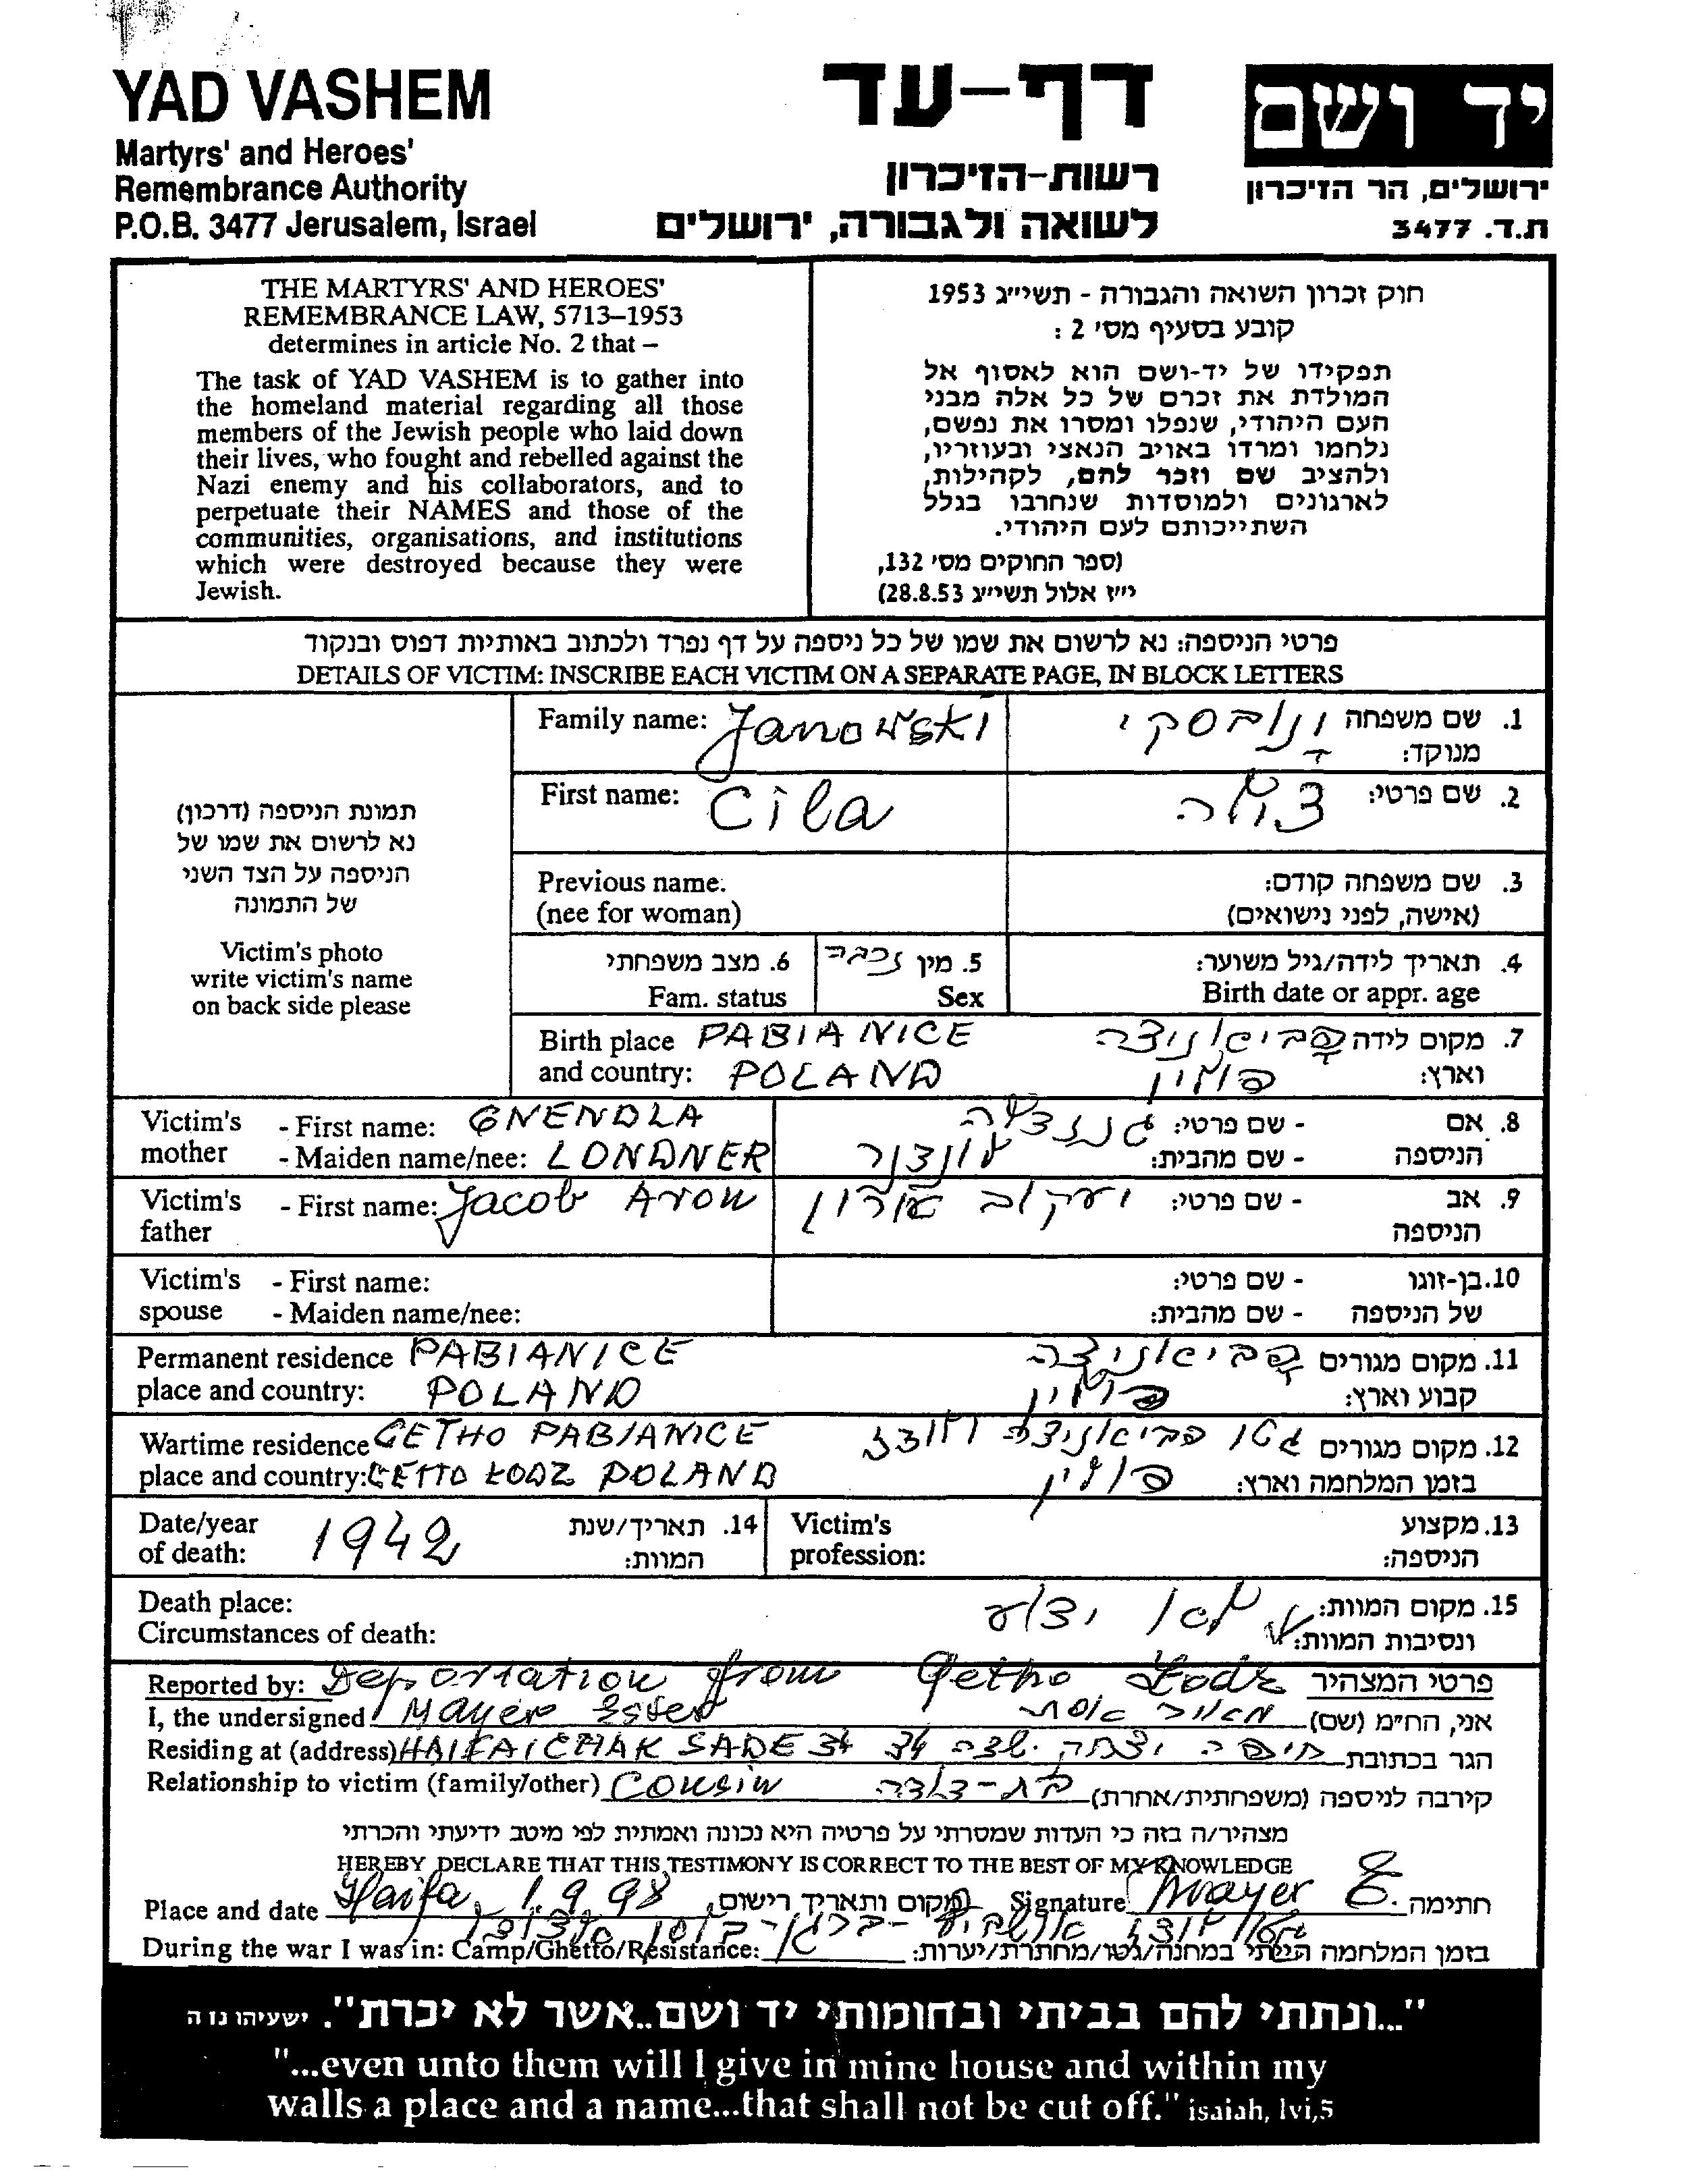 YAD VASHEM
Martyrs' and Heroes'
Remembrance Authority
P.O.B. 3477 Jerusalem, Israel
דף-עד
רשות-הזיכרון
לשואה ולגבורה, ירושלים
יד ושם
ירושלים, הר הזיכרון
ת.ד. 3477
THE MARTYRS' AND HEROES'
REMEMBRANCE LAW, 5713–1953
determines in article No. 2 that –
The task of YAD VASHEM is to gather into
the homeland material regarding all those
members of the Jewish people who laid down
their lives, who fought and rebelled against the
Nazi enemy and his collaborators, and to
perpetuate their NAMES and those of the
communities, organisations, and institutions
which were destroyed because they were
Jewish.
חוק זכרון השואה והגבורה - תשי״ג 1953
קובע בסעיף מס׳ 2 :
תפקידו של יד-ושם הוא לאסוף אל
המולדת את זכרם של כל אלה מבני
העם היהודי, שנפלו ומסרו את נפשם,
נלחמו ומרדו באויב הנאצי ובעוזריו,
ולהציב שם וזכר להם, לקהילות,
לארגונים ולמוסדות שנחרבו בגלל
השתייכותם לעם היהודי.
(ספר החוקים מס׳ 132,
י״ז אלול תשי״ג 28.8.53)
פרטי הניספה: נא לרשום את שמו של כל ניספה על דף נפרד ולכתוב באותיות דפוס ובנקוד
DETAILS OF VICTIM: INSCRIBE EACH VICTIM ON A SEPARATE PAGE, IN BLOCK LETTERS
תמונת הניספה (דרכון)
נא לרשום את שמו של
הניספה על הצד השני
של התמונה
Victim's photo
write victim's name
on back side please
Family name: Janowski
1. שם משפחה ינובסקי
מנוקד:
First name: Cila
2. שם פרטי: צילה
Previous name:
(nee for woman)
3. שם משפחה קודם:
(אישה, לפני נישואים)
6. מצב משפחתי
Fam. status
5. מין נקבה
Sex
4. תאריך לידה/גיל משוער:
Birth date or appr. age
Birth place PABIANICE
and country: POLAND
7. מקום לידה פביאניצה
וארץ: פולין
Victim's mother - First name: GNENDLA
- Maiden name/nee: LONDNER
8. אם - שם פרטי: גננדלה
הניספה - שם מהבית: לונדנר
Victim's father - First name: Jacob Aron
9. אב - שם פרטי: יעקוב אורון
הניספה
Victim's - First name:
spouse - Maiden name/nee:
10. בן-זוגו - שם פרטי:
של הניספה - שם מהבית:
Permanent residence PABIANICE
place and country: POLAND
11. מקום מגורים פביאניצה
קבוע וארץ: פולין
Wartime residence GETHO PABIANICE
place and country: GETTO ŁODZ POLAND
12. מקום מגורים גטו פביאניצה ולודז
בזמן המלחמה וארץ: פולין
Date/year
of death: 1942
14. תאריך/שנת
המוות:
Victim's
profession:
13. מקצוע
הניספה:
Death place:
Circumstances of death:
15. מקום המוות: לא ידוע
ונסיבות המוות:
Reported by: Deportation from Getho Lodz פרטי המצהיר
I, the undersigned Mayer Ester
אני, החי״מ (שם) מאיר אסתר
Residing at (address) HAIFA ICHAK SADE 34
הגר בכתובת חיפה יצחק שדה 34
Relationship to victim (family/other) Cousin
קירבה לניספה (משפחתית/אחרת) בת-דודה
מצהיר/ה בזה כי העדות שמסרתי על פרטיה היא נכונה ואמתית לפי מיטב ידיעתי והכרתי
HEREBY DECLARE THAT THIS TESTIMONY IS CORRECT TO THE BEST OF MY KNOWLEDGE
Place and date Haifa, 1.9.98 מקום ותאריך רישום, Signature Mayer E. חתימה
During the war I was in: Camp/Ghetto/Resistance:
בזמן המלחמה הייתי במחנה/גטו/מחתרת/יערות:
"...ונתתי להם בביתי ובחומותי יד ושם..אשר לא יכרת". ישעיהו נו ה
"...even unto them will I give in mine house and within my
walls a place and a name...that shall not be cut off." isaiah, lvi,5